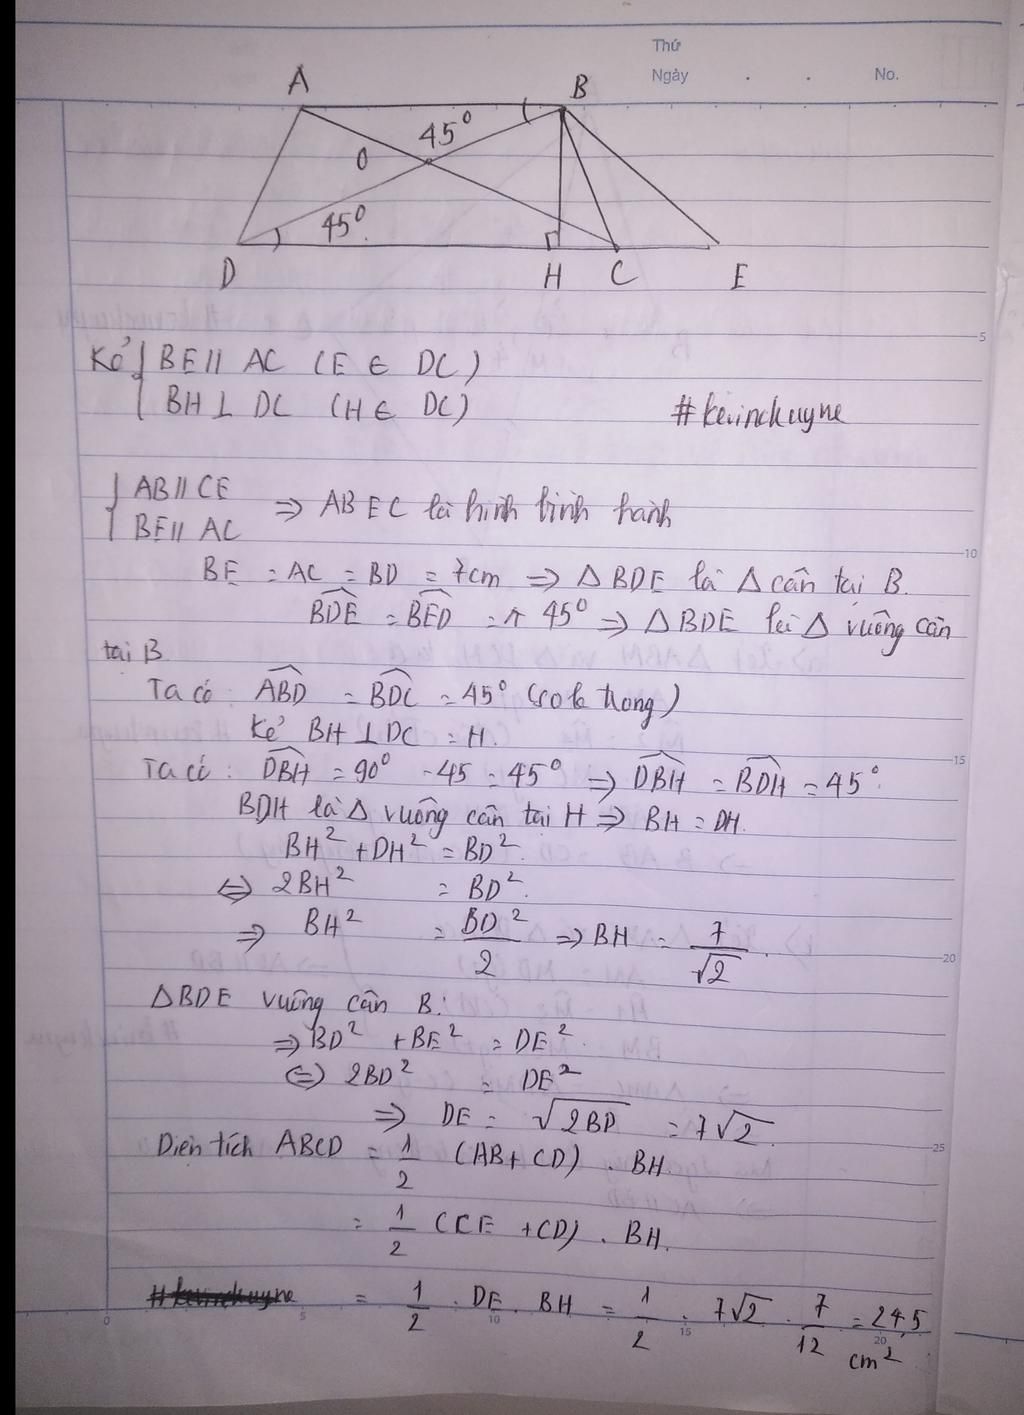 Thứ
Ngày . . No.
A B
45°
O
45°
D H C E
Kẻ { BE // AC (E ∈ DC)
{ BH ⊥ DC (H ∈ DC)
#kevinchuyne
{ AB // CE
{ BE // AC
⇒ ABEC là hình bình hành
BE = AC = BD = 7cm ⇒ △BDE là △ cân tại B.
BDE = BED = 45° ⇒ △BDE là △ vuông cân
tại B
Ta có: ABD = BDC = 45° (so le trong)
Kẻ BH ⊥ DC = H.
Ta có: DBH = 90° - 45 = 45° ⇒ DBH = BDH = 45°
BDH là △ vuông cân tại H ⇒ BH = DH.
BH² + DH² = BD².
⇔ 2BH² = BD².
⇒ BH² = BD²/2 ⇒ BH = 7/√2.
△BDE vuông cân B:
⇒ BD² + BE² = DE².
⇔ 2BD² = DE²
⇒ DE = √2BD = 7√2.
Diện tích ABCD = 1/2 (AB + CD) . BH
= 1/2 (CE + CD) . BH.
= 1/2 . DE . BH = 1/2 . 7√2 . 7/12 = 24,5
cm²
5
10
15
20
25
0 5 10 15 20